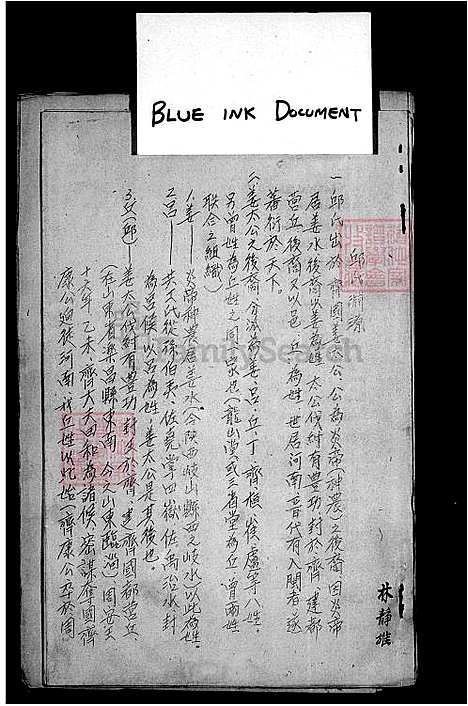 BLUE INK DOCUMENT
邱氏淵源
一、邱氏出於齊國姜太公、公為炎帝(神農)之後裔、因炎帝
居姜水後裔以姜為姓、太公伐紂有豐功、封於齊、建都
營丘、後裔又以邑丘為姓、世居河南、晉代有入閩者遂
蕃衍於天下。
二、姜太公之後裔分派為姜、呂、丘、丁、齊、崔、盧等八姓、
另曾姓為丘姓之同宗也(龍山堂或三省堂為丘曾兩姓
聯合之組織)
1.姜——炎帝神農居姜水(今陝西岐山縣西之岐水)以此為姓。
2.呂——共工氏從孫伯夷、佐堯掌四嶽、佐禹治水封
為呂侯、以呂為姓、姜太公是其後也。
3.丘(邱)——姜太公伐紂有豐功、封於齊、建齊國都營丘、
(在山東省樂昌縣東南、今之山東臨淄)周安王
十六年乙未、齊大夫田和為諸侯、密謀奪國齊
康公
河南
丘姓以此始(齊康公卒於周
林靜雄
FamilySearch